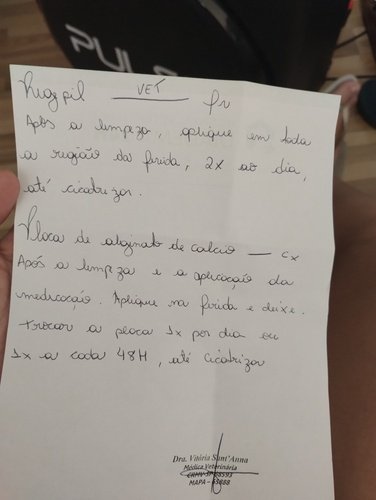 PULS
VET
Após a limpeza, aplique em toda
a região da ferida, 2x ao dia,
até cicatrizar.
Placa de alginato de calcio — cx
Após a limpeza e a aplicação da
medicação. Aplique na ferida e deixe.
Trocar a placa 1x por dia ou
1x a cada 48H, até cicatrizar
Dra. Vitória Sant'Anna
Médica Veterinária
MAPA -